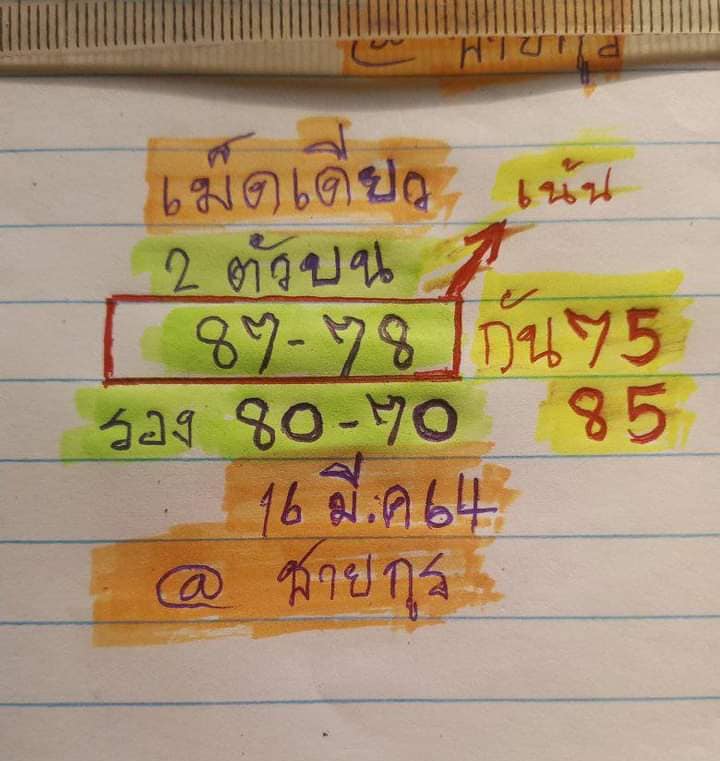 @ ชายกูร
เม็ดเดียว เน้น
2 ตัวบน
87-78 กัน 75
รอง 80-70 85
16 มี.ค 64
@ ชายกูร